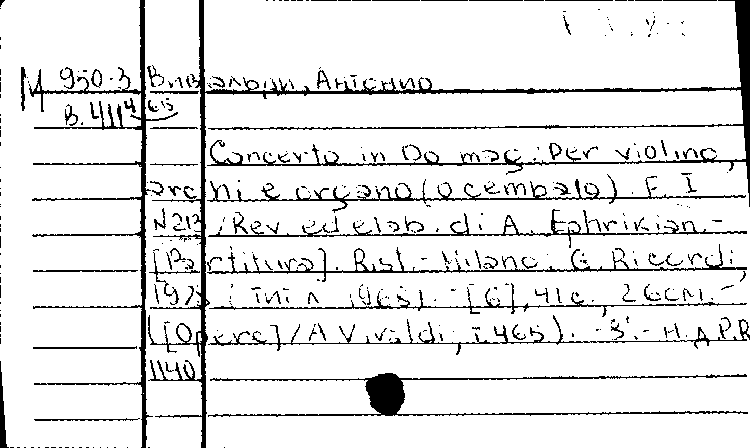 М 950-3 Вивальди, Антонио
В.4114 615
Concerto in Do mag. : Per violino,
archi e organo (o cembalo). F. I
N 213 / Rev. ed elab. di A. Ephrikian. -
[Partitura]. Rist. - Milano: G. Ricordi,
(1965). - [6], 41 c., 26 см. -
([Opere] / A Vivaldi; т. 465). - - Н.д. P.R.
1140